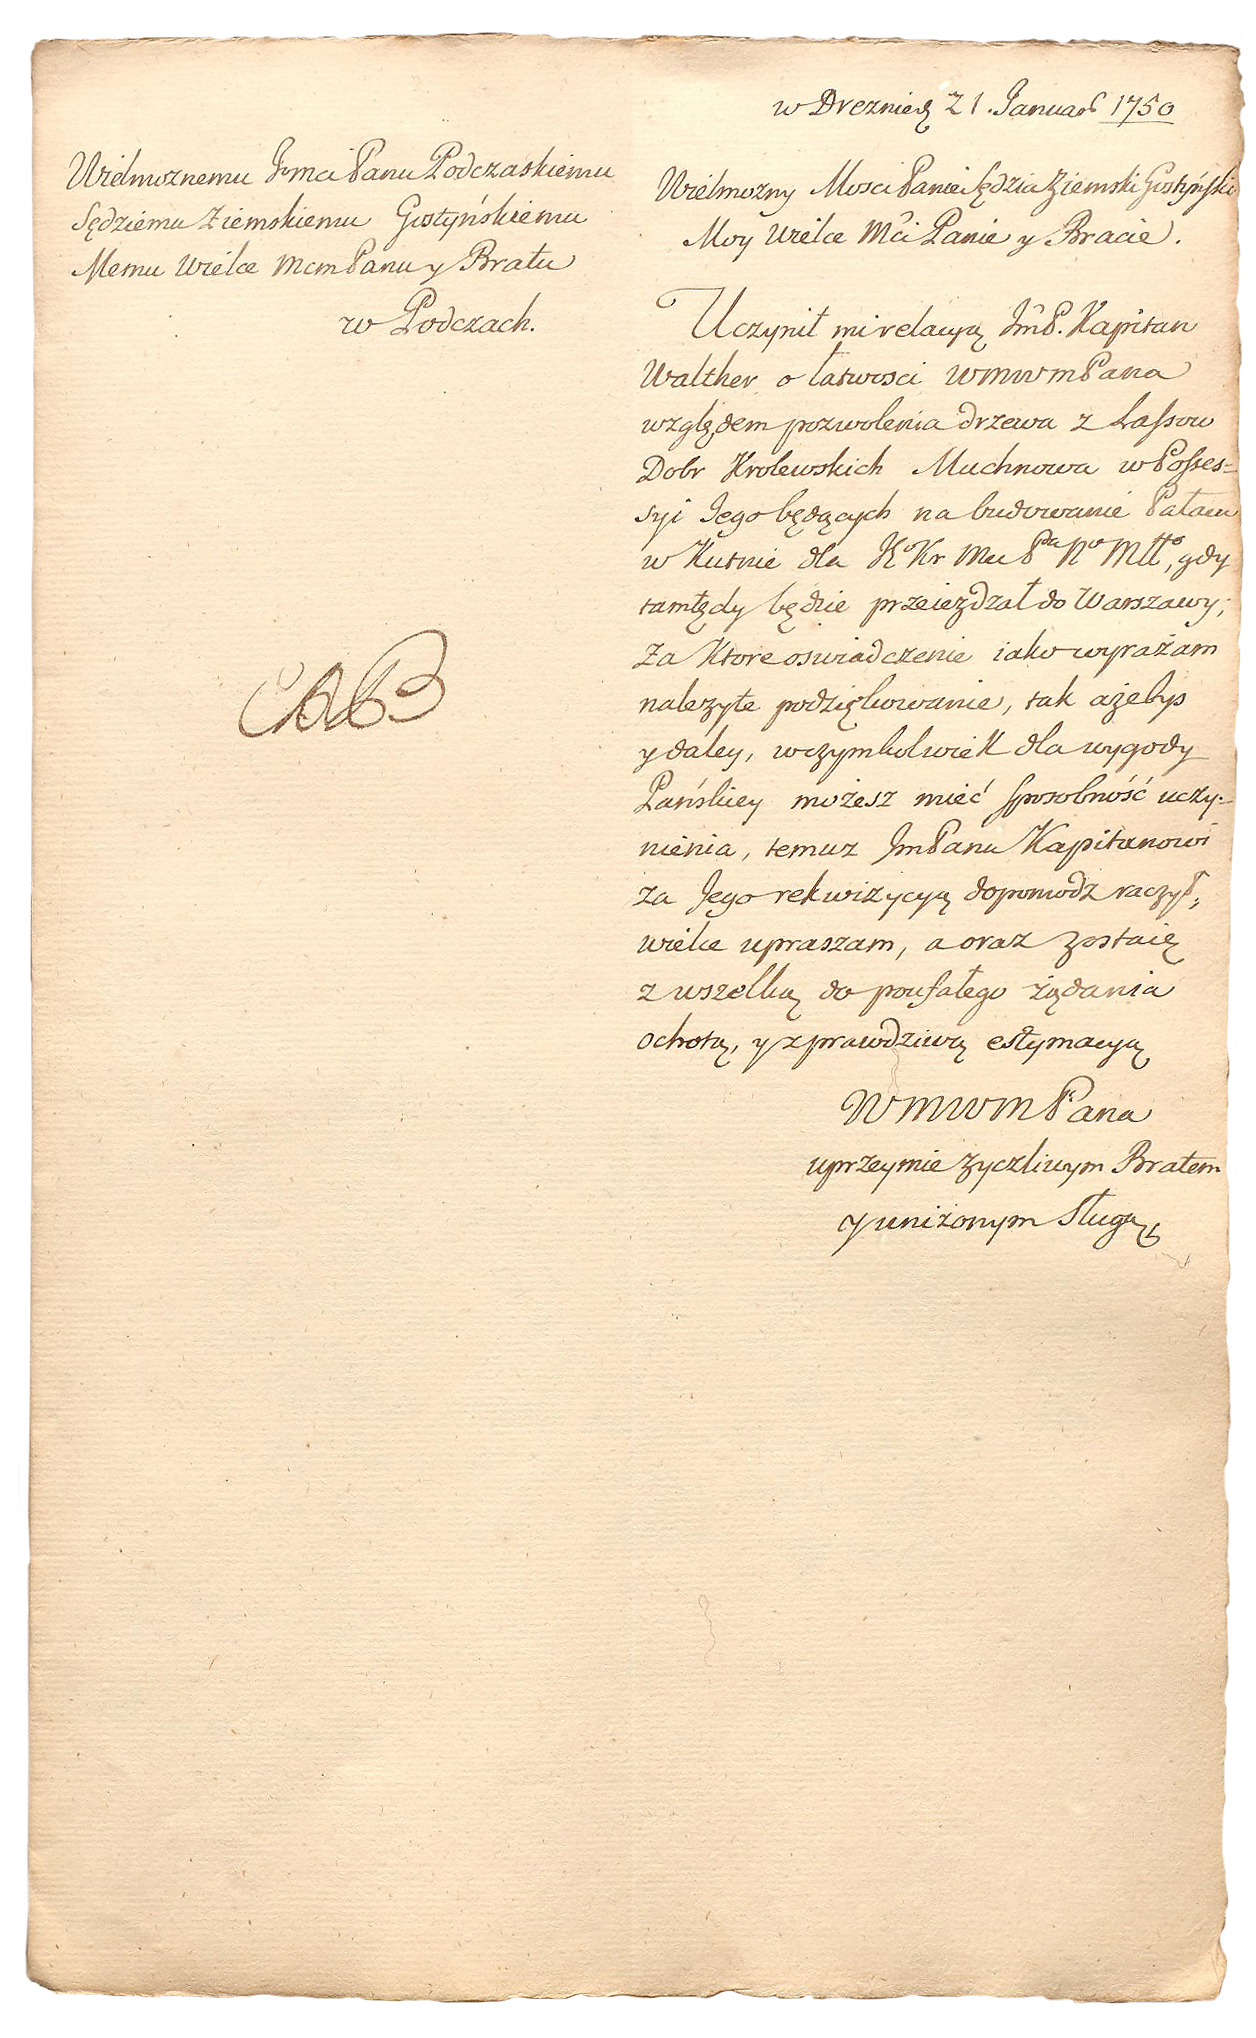 w Dreznie d 21. Januar 1750
Wielmoznemu Jmci Panu Podczaskiemu
Sędziemu Ziemskiemu Gostyńskiemu
Memu Wielce Mcm Panu y Bratu
w Podczach.
Wielmozny Mosci Panie Sędzia Ziemski Gostyński
Moy Wielce Mci Panie y Bracie.
Uczynił mi relacyą JmP. Kapitan
Walther o łatwosci WMWmPana
względem pozwolenia drzewa z Lassow
Dobr Krolewskich Muchnowa w Posses-
syi Jego będących na budowanie Pałacu
w Kutnie dla K Kr Mci Pa No Mtto, gdy
tamtędy będzie przeiezdzał do Warszawy;
Za Ktore oswiadczenie iako wyrażam
nalezyte podziękowanie, tak ażebys
y daley, w czymkolwiek dla wygody
Pańskiey możesz mieć sposobność uczy-
nienia, temuz JmPanu Kapitanowi
za Jego rekwizycyą dopomodz raczył,
wielce upraszam, a oraz zostaię
z wszelką do poufałego żądania
ochotą, y z prawdziwą estymacyą
WMWMPana
uprzeymie zyczliwym Bratem
y unizonym Sługą